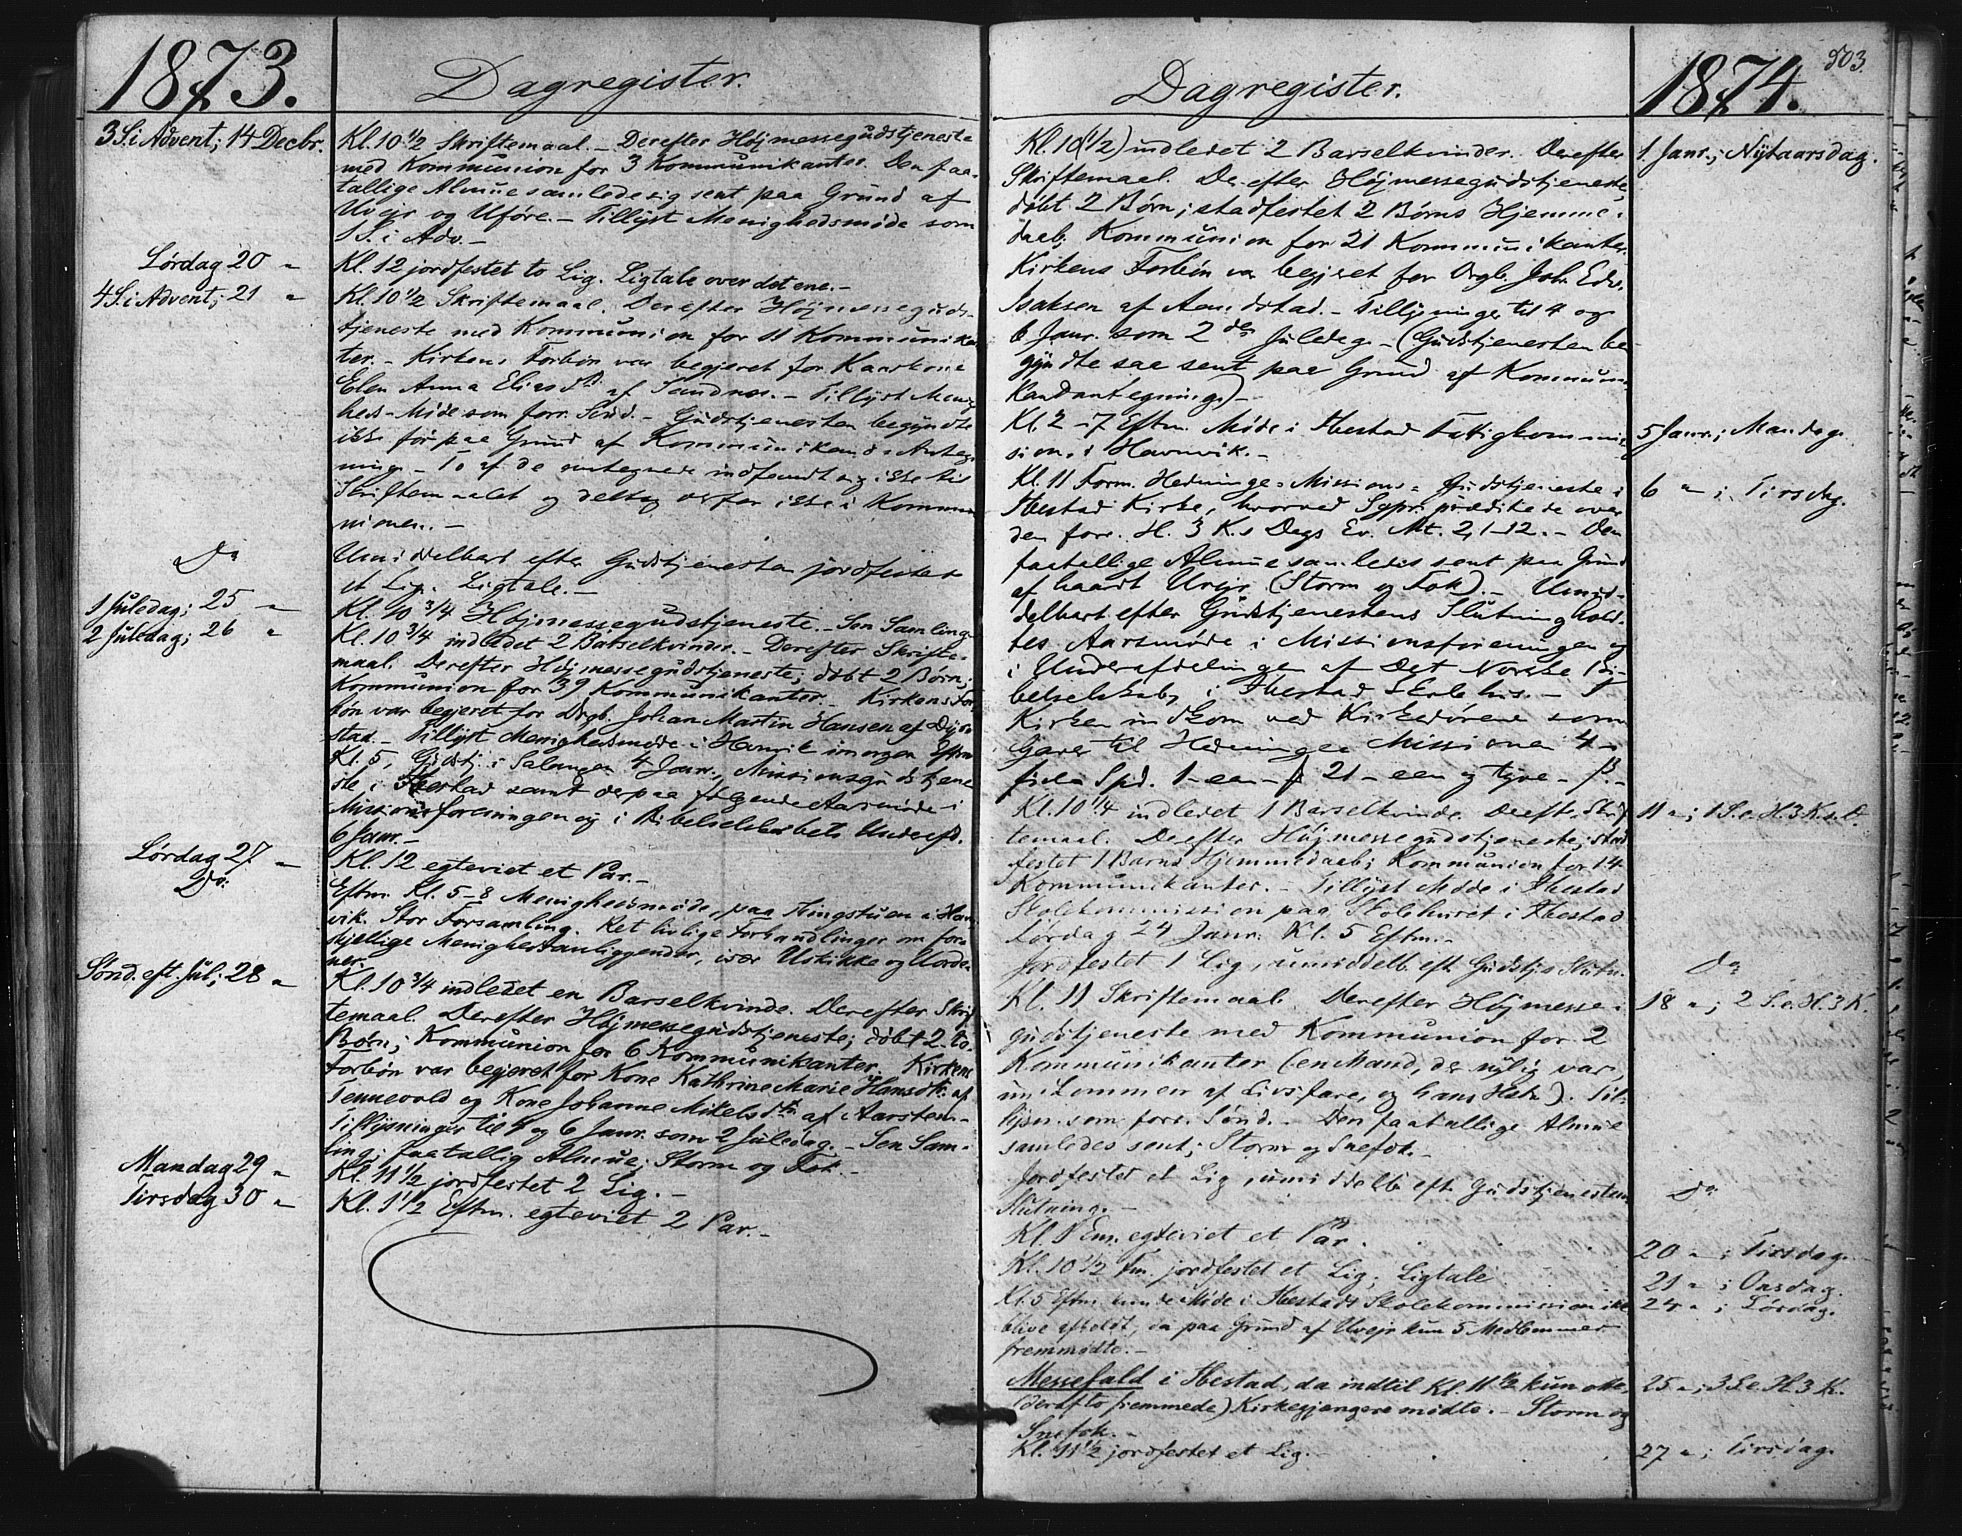 1873.
Dagregister.
3 S. i Advent; 14 Decbr.
Kl. 10 1/2 Skriftemaal. – Derefter Højmessegudstjeneste
med Kommunion for 3 Kommunikanter. Den faa-
tallige Almue samlede sig sent paa Grund af
Uvejr og Uføre. – Tillyst Menighedsmøde som
1 S. i Adv. –
Lørdag 20 "
Kl. 12 jordfestet to Lig. Ligtale over det ene. –
4 S. i Advent; 21 "
Kl. 10 1/2 Skriftemaal. Derefter Højmesseguds-
tjeneste med Kommunion for 11 Kommunikan-
ter. – Kirkens Forbøn var begjeret for Kaarkone
Elen Anna Elias D. af Sandnes. – Tillyst Menig-
heds-Møde som forr. Sønd. – Gudstjenesten begyndte
ikke før paa Grund af Kommunikand-Anteg-
ning. – To af de antegnede indfandt sig ikke til
Skriftemaalet og deltog derfor ikke i Kommu-
nionen. –
Do
Umiddelbart efter Gudstjenesten jordfestet
et Lig. Ligtale. –
1 Juledag; 25 "
Kl. 10 3/4 Højmessegudstjeneste. – Sen Samling.
2 Juledag; 26 "
Kl. 10 3/4 indledet 2 Barselkvinder. – Derefter Skrifte-
maal. Derefter Højmessegudstjeneste; døbt 2 Børn;
Kommunion for 39 Kommunikanter. – Kirkens For-
bøn var begjeret for Drgb. Johan Martin Hansen af
stad. – Tillyst Menighedsmøde i Havnvik imorgen Eftm.
Kl. 5, Gudstj. i Salangen 4 Janr., Missionsgudstjene-
ste i Ibestad samt derpaa følgende Aarsmøde i
Missionsforeningen og i Bibelselskabets Underafd.
6 Janr. –
Lørdag 27 "
Kl. 12 egteviet et Par. –
Do.
Eftm. Kl. 5–8 Menighedsmøde paa Thingstuen i Havn-
vik. Stor Forsamling. Ret livlige Forhandlinger om for-
skjellige Menighedsanliggender, især Uskikke og Uorde-
ner.
Sønd. eft. Jul; 28 "
Kl. 10 3/4 indledet en Barselkvinde. Derefter Skrif-
temaal. Derefter Højmessegudstjeneste; døbt 2 to
Børn; Kommunion for 6 Kommunikanter. Kirkens
Forbøn var begjeret for Kone Kathrine Marie Hansdtr. af
Tennevold og Kone Johanne Mikelsdtr af Aarsten. –
Tillysninger til 4 og 6 Janr. som 2 Juledag. – Sen Sam-
ling; faatallig Almue; Storm og Fok. –
Mandag 29 "
Kl. 11 1/2 jordfestet 2 Lig. –
Tirsdag 30 "
Kl. 1 1/2 Eftm. egteviet 2 Par. –
503.
Dagregister.
1874.
1 Janr.; Nytaarsdag.
Kl. 10 (1/2) indledet 2 Barselkvinder. Derefter
Skriftemaal. Derefter Højmessegudstjeneste;
døbt 2 Børn; stadfestet 2 Børns Hjemme-
daab; Kommunion for 21 Kommunikanter.
Kirkens Forbøn var begjeret for Joh. Edv.
Isaksen af Aandstad. – Tillysninger til 4 og
6 Janr. som 2den Juledag. – (Gudstjenesten be-
gyndte saa sent paa Grund af Kommuni-
kandantegning). –
5 Janr.; Mandag.
Kl. 2–7 Eftm. Møde i Ibestad Fattigkommis-
sion i Havnvik. –
6 " ; Tirsdag.
Kl. 11 Form. Hedninge-Missions-Gudstjeneste i
Ibestad Kirke, hvorved Sgpr. prædikede over
den forr. H. 3 K.s Dags Ev. Mt. 2, 1–12. – Den
faatallige Almue samledes sent paa Grund
af haardt Uvejr (Storm og Fok). – Umid-
delbart efter Gudstjenestens Slutning hold-
tes Aarsmøde i Missionsforeningen og
i Underafdelingen af Det Norske Bi-
belselskab, i Ibestad Skolehus. – I
Kirken indkom ved Kirkedørene som
Gaver til Hedninge Missionen 4 –
fire Spd. 1 – een – ß 21 – een og tyve – ß. –
11 " ; 1 S. e. H. 3 K. s. D.
Kl. 10 1/4 indledet 1 Barselkvinde. Dereft. Skrif-
temaal. Derefter Højmessegudstjeneste; stad-
festet 1 Barns Hjemmedaab; Kommunion for 14
Kommunikanter. – Tillyst Møde i Ibestad
Skolekommission paa Skolehuset i Ibestad
Lørdag 24 Janr. Kl. 5 Eftm. –
Do
Jordfestet 1 Lig, umiddelb. eft. Gudstjs Slutn.
18 " ; 2 S. e. H. 3 K.
Kl. 11 Skriftemaal. Derefter Højmesse-
gudstjeneste med Kommunion for 2
Kommunikanter (en Mand, der nylig var
undkommen af Livsfare, og hans Hstr.). Til-
lysn. som forr. Sønd. – Den faatallige Almue
samledes sent; Storm og Snefok. –
Do
Jordfestet et Lig, umiddelb. eft. Gudstjenestens
Slutning. –
20 " ; Tirsdag.
Kl. 1 Em. egteviet et Par.
21 " ; Onsdag.
Kl. 10 1/2 Fm. jordfestet et Lig; Ligtale.
24 " ; Lørdag.
Kl. 5 Eftm. kunde Møde i Ibestads Skolekommission ikke
blive afholdt, da paa Grund af Uvejr kun 5 Medlemmer
fremmødte. –
25 " ; 3 S. e. H. 3 K.
Messefald i Ibestad, da indtil Kl. 11 1/2 kun otte,
(deraf to fremmede) Kirkegjengere mødte. – Storm og
Snefok. –
27 " ; Tirsdag.
Kl. 11 1/2 jordfestet et Lig. –